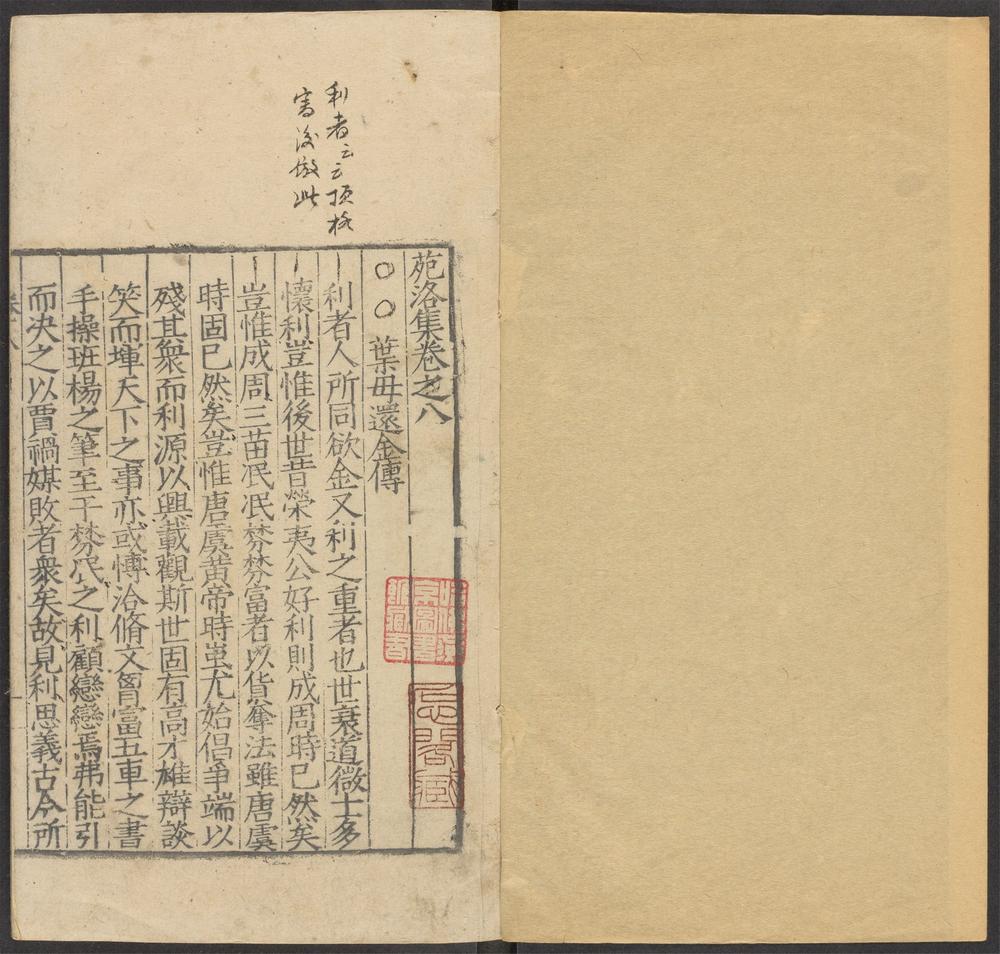 利者云云頂格
寫後倣此
苑洛集卷之八
○○葉母還金傳
利者人所同欲金又利之重者也世衰道微士多
懷利豈惟後世昔榮夷公好利則成周時已然矣
豈惟成周三苗泯泯棼棼富者以貨奪法雖唐虞
時固已然矣豈惟唐虞黄帝時蚩尤始倡爭端以
殘其衆而利源以興載觀斯世固有高才雄辯談
笑而揮天下之事亦或博洽脩文胷富五車之書
手操班楊之筆至于棼泯之利顧戀戀焉弗能引
而决之以賈禍媒敗者衆矣故見利思義古今所